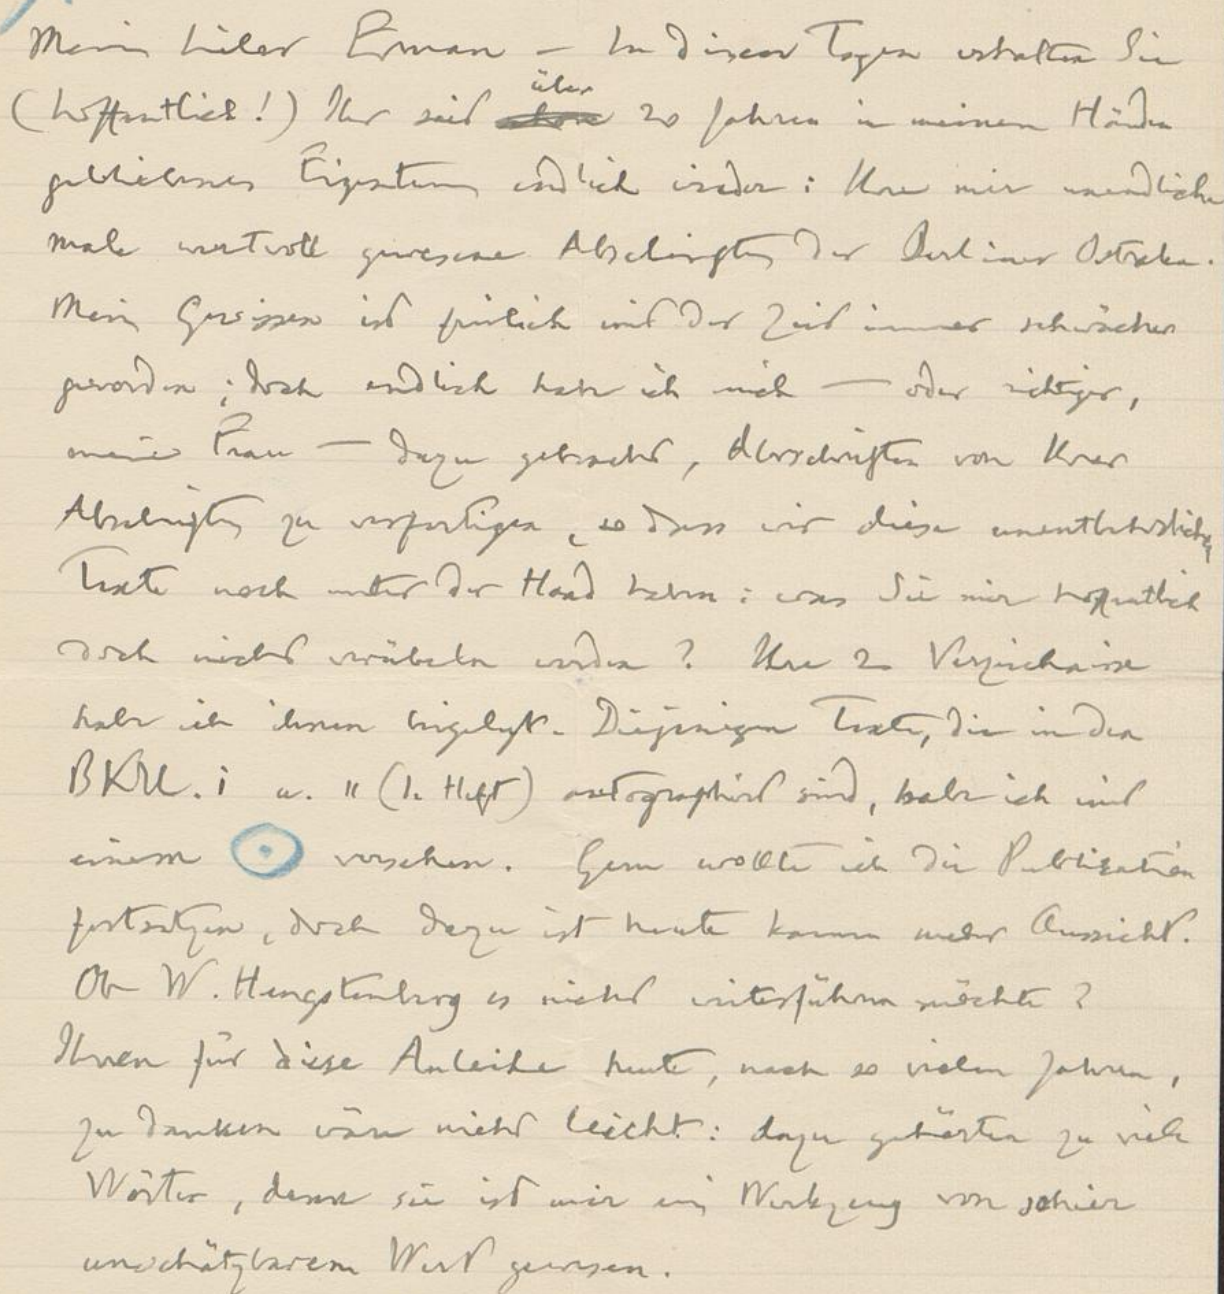 Mein lieber Erman – In diesen Tagen erhalten Sie
(hoffentlich!) Ihr seit über 20 Jahren in meinen Händen
gebliebenes Eigentum endlich wieder: Ihre mir unendliche
male wertvoll gewesene Abschriften der Berliner Ostraka.
Mein Gewissen ist freilich mit der Zeit immer schwächer
geworden; doch endlich habe ich mich — oder richtiger,
meine Frau — dazu gebracht, Abschriften von Ihrer
Abschriften zu verfertigen, so dass wir diese unentbehrlichen
Texte noch unter der Hand haben: was Sie mir hoffentlich
doch nicht verübeln werden? Ihre 2 Verzeichnisse
habe ich ihnen beigelegt. Diejenigen Texte, die in den
BKU. i u. ii (1. Heft) autographirt sind, habe ich mit
einem ⊙ versehen. Gern wollte ich die Publikation
fortsetzen, doch dazu ist heute kaum mehr Aussicht.
Ob W. Hengstenberg es nicht weiterführen möchte?
Ihnen für diese Anleihe heute, nach so vielen Jahren,
zu danken wäre nicht leicht: dazu gehörten zu viele
Wörter, denn sie ist mir ein Werkzeug von schier
unschätzbarem Wert gewesen.